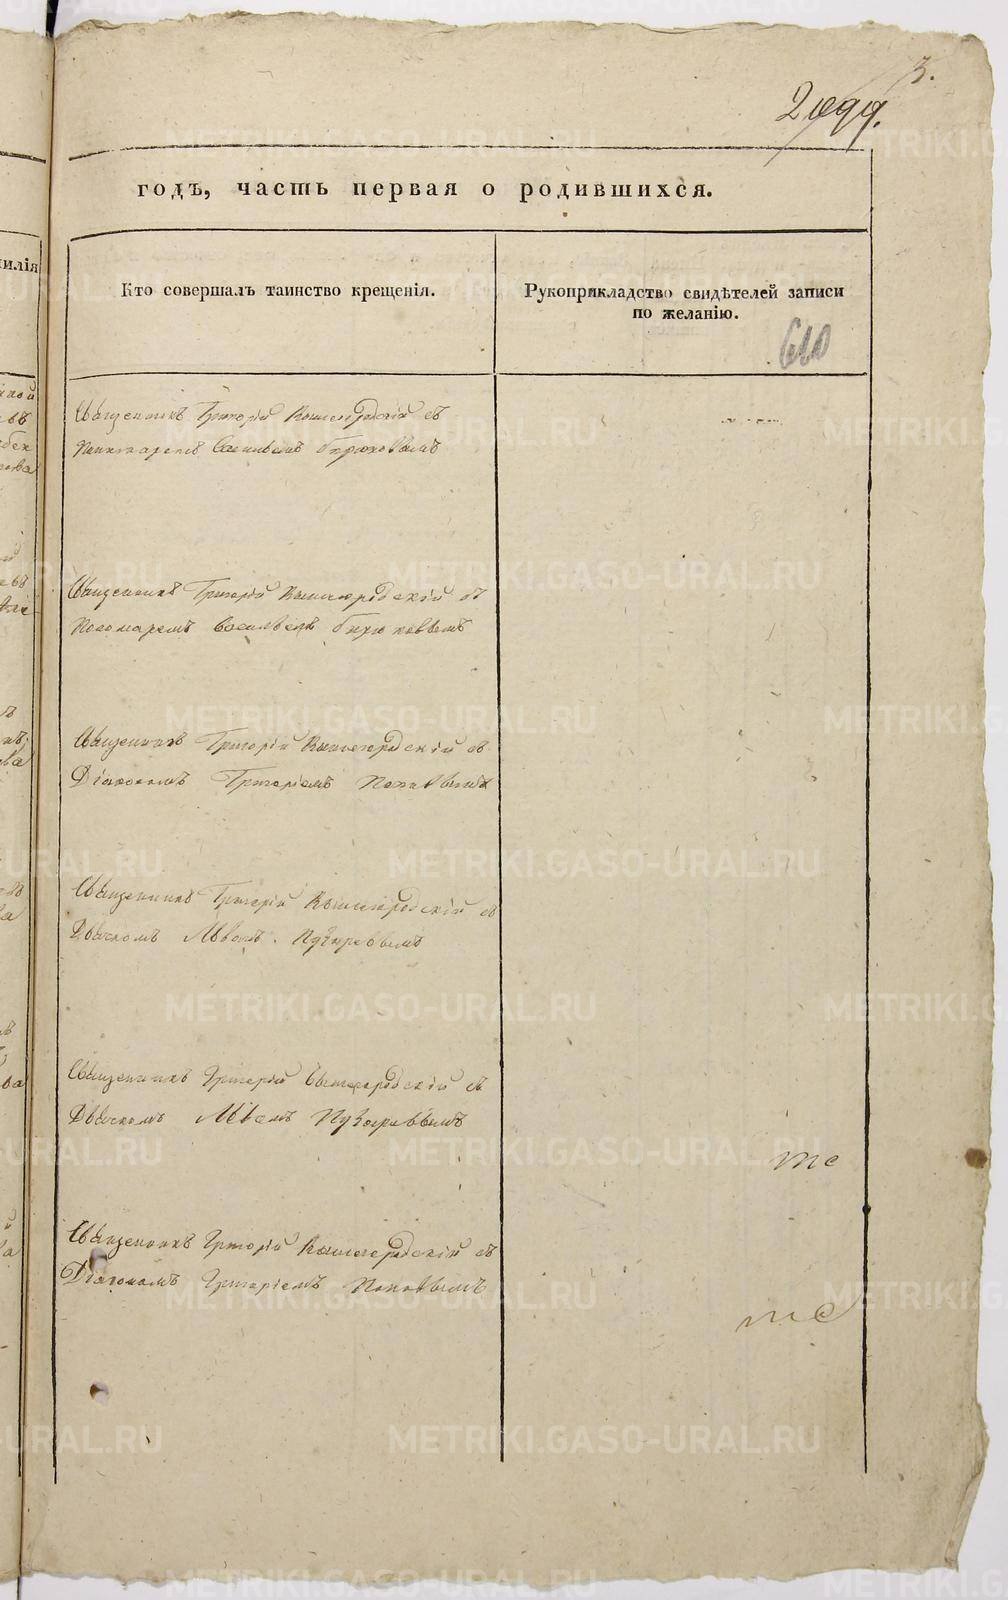 3.
2099.
годъ, часть первая о родившихся.
илія
Кто совершалъ таинство крещенія.
Рукоприкладство свидѣтелей записи
по желанію.
610
Священникъ Григорій Вышегородскій съ
Пономаремъ Василіемъ Бирюковымъ
Священникъ Григорій Вышегородскій съ
Пономаремъ Василіемъ Бирюковымъ
Священникъ Григорій Вышегородскій съ
Діакономъ Григоріемъ Поповымъ
Священникъ Григорій Вышегородскій съ
Дьячкомъ Львомъ Пузыревымъ
Священникъ Григорій Вышегородскій съ
Дьячкомъ Львомъ Пузыревымъ
те
Священникъ Григорій Вышегородскій съ
Діакономъ Григоріемъ Поповымъ
те
METRIKI.GASO-URAL.RU